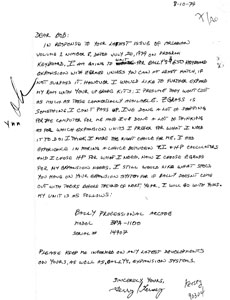 8-10-79
DEAR BOB:
IN RESPONSE TO YOUR LATEST ISSUE OF ARCADIAN
VOLUME 1 NUMBER 8, DATED JULY 20, 1979 ON PROGRAM
KEYBOARD. I AM GOING TO BALLY'S $650 KEYBOARD
EXPANSION WITH ZGRASS UNLESS YOU CAN AT LEAST MATCH, IF
NOT SURPASS IT. HOWEVER I WOULD LIKE TO FURTHER EXPAND
MY RAM WITH YOUR UP GRADE KITS. I PRESUME THEY WON'T COST
AS MUCH AS THOSE COMMERCIALLY AVAILABLE. ZGRASS IS
SOMETHING I CAN'T PASS UP. I'VE DONE A LOT OF SHOPPING
FOR THE COMPUTER FOR ME AND I'VE DONE A LOT OF THINKING
AS FOR WHICH EXPANSION UNITS I PREFER FOR WHAT I NEED
IT TO DO. I THINK I MADE THE RIGHT CHOICE FOR ME. I HAD
EXPERIENCE IN MAKING A CHOICE BETWEEN TI & HP CALCULATORS
AND I CHOSE HP FOR WHAT I NEED. NOW I CHOOSE ZGRASS FOR
MY EXPANSION NEEDS. I STILL WOULD LIKE WHAT SPECS
YOU HAVE ON YOUR EXPANSION SYSTEM FOR IF BALLY DOESN'T COME
OUT WITH THEIRS BEFORE THE END OF NEXT YEAR, I WILL GO WITH YOURS.
MY UNIT IS AS FOLLOWS:
BALLY PROFESSIONAL ARCADE
MODEL BPA-1100
SERIAL #
PLEASE KEEP ME INFORMED ON ANY LATEST DEVELOPMENTS
ON YOURS, AS WELL AS, BALLY, EXPANSION SYSTEMS.
SINCERELY YOURS,